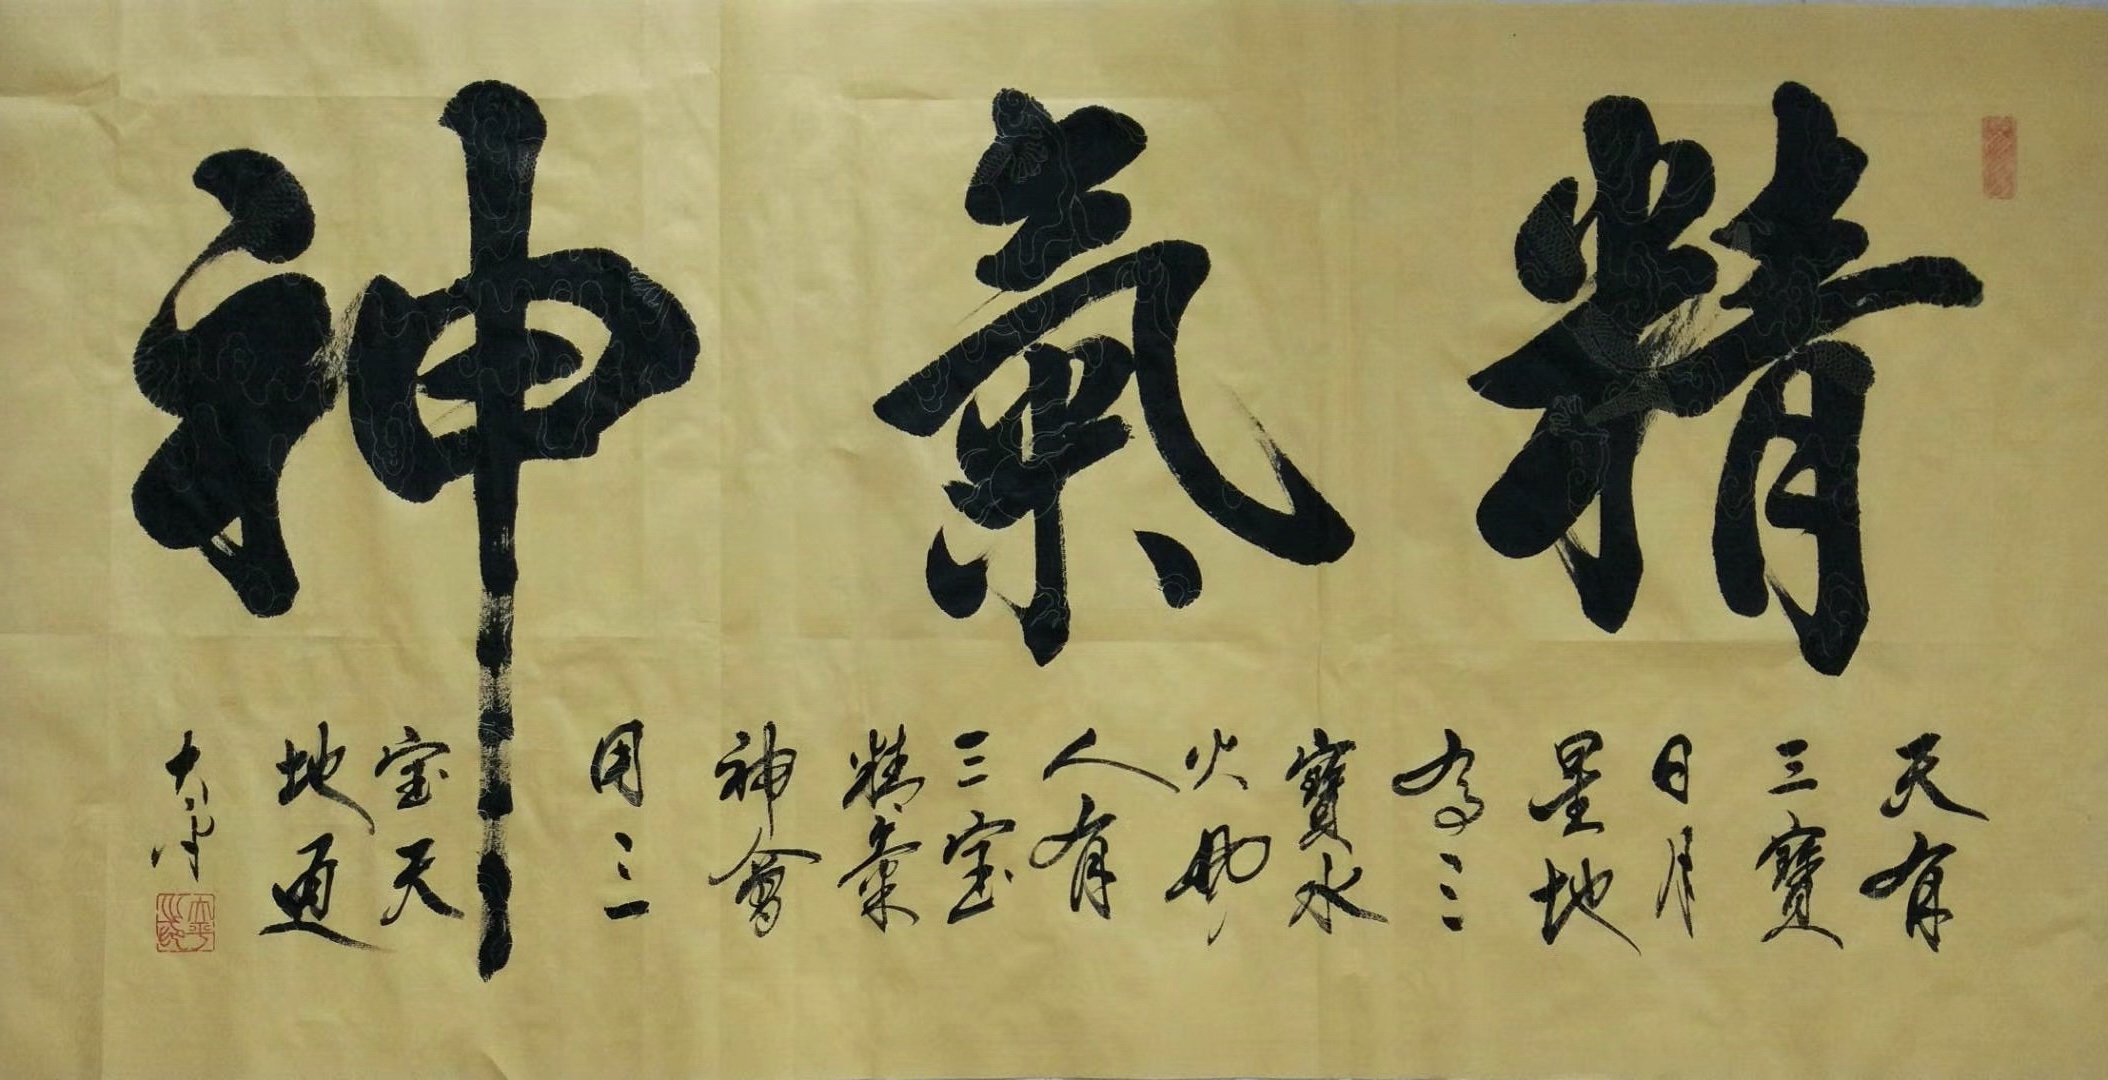 精氣神
天有
三寶
日月
星地
為三
寶水
火風
人有
三宝
精氣
神會
用三
宝天
地通
太平